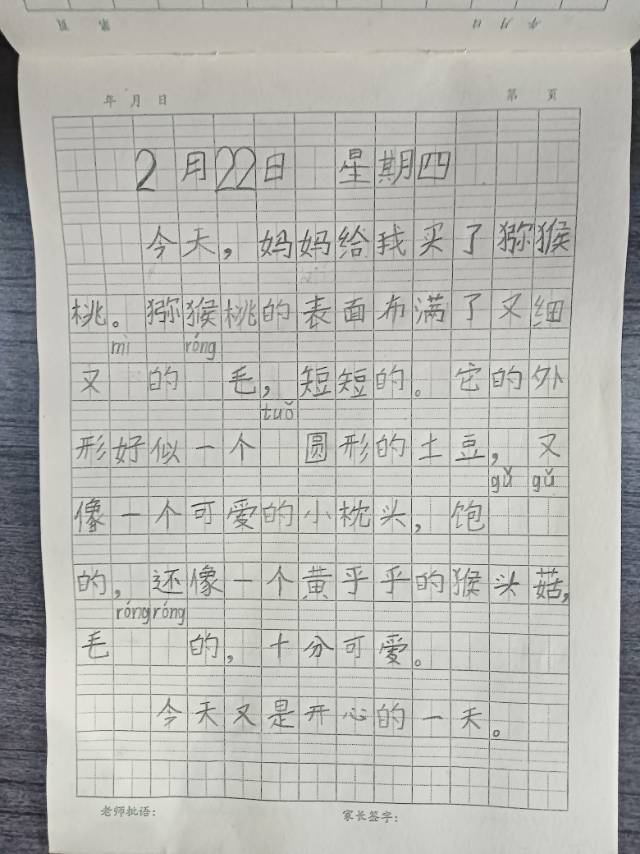 年 月 日 第 页
年 月 日
第 页
2月22日 星期四
今天，妈妈给我买了猕猴
桃。猕猴桃的表面布满了又细
mì róng
又 的 毛，短短的。它的外
tuǒ
形好似一个 圆形的土豆，又
gǔ gǔ
像一个可爱的小枕头，饱
的，还像一个黄乎乎的猴头菇，
róng róng
毛 的，十分可爱。
今天又是开心的一天。
老师批语： 家长签字：